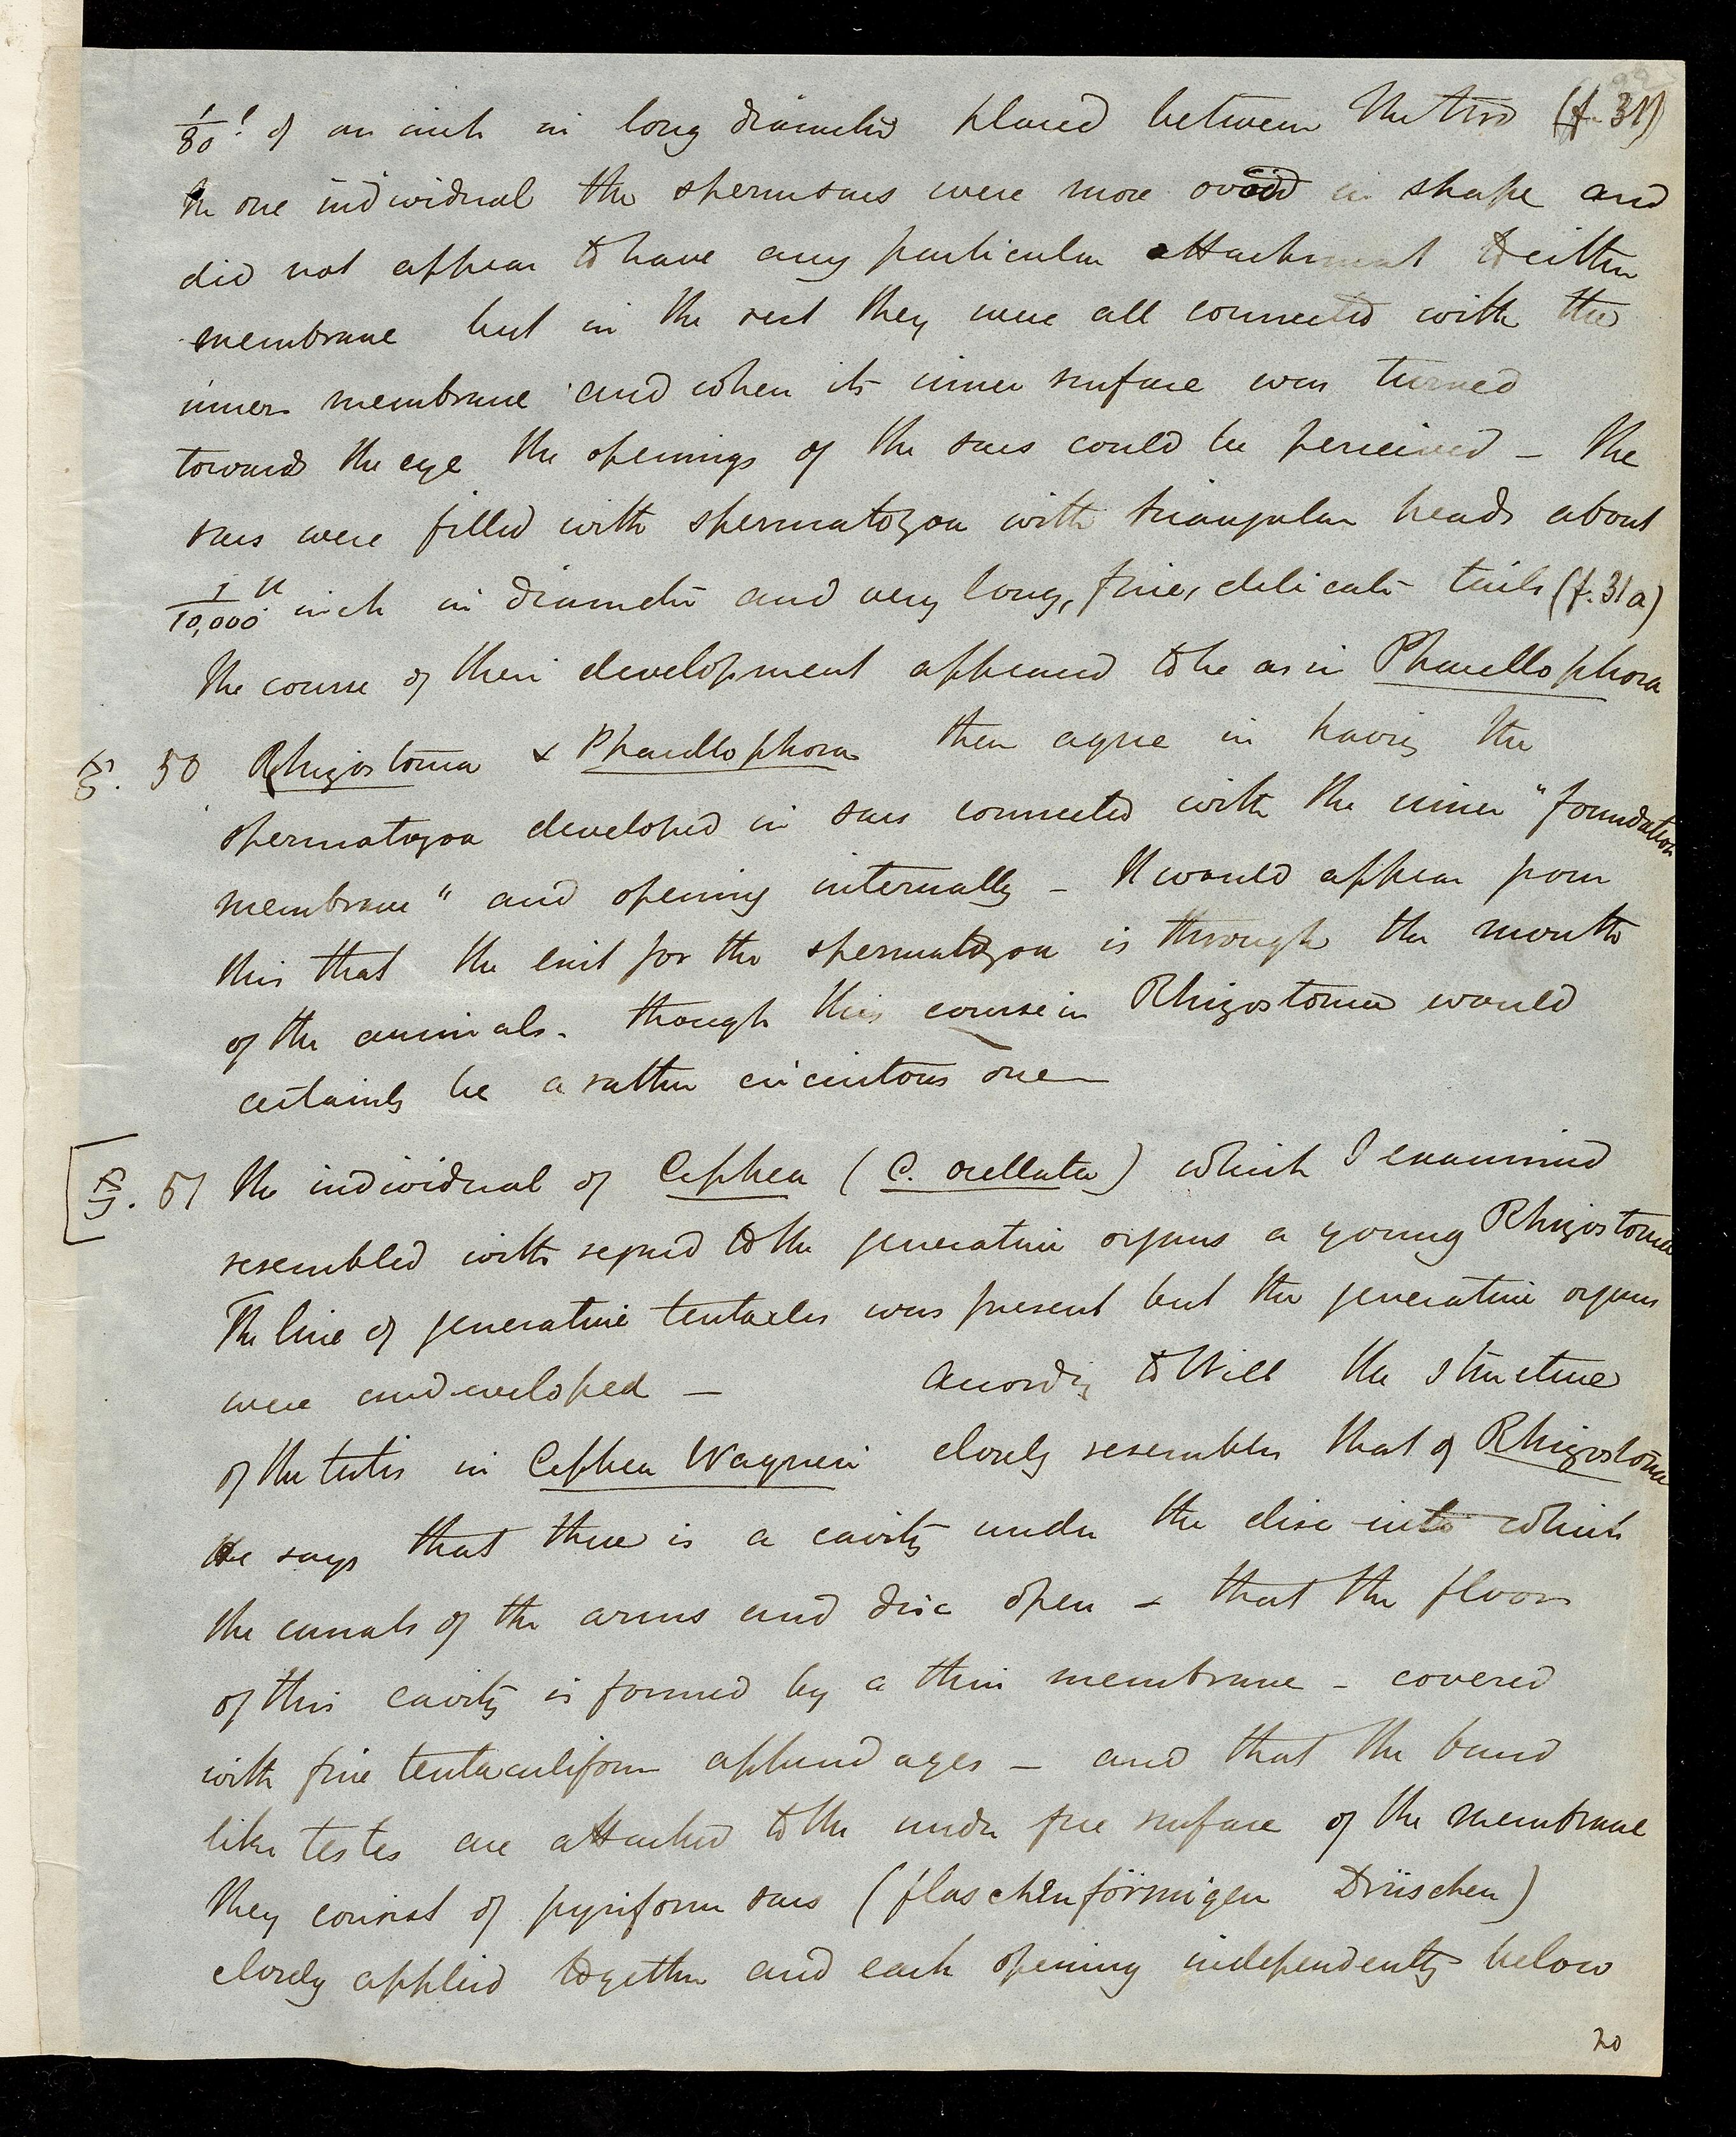 1/80th of an inch in long diameter placed between the two (f. 31)
In one individual the spermsacs were more ovoid in shape and
did not appear to have any particular attachment to either
membrane but in the rest they were all connected with the
inner membrane and when its inner surface was turned
towards the eye the openings of the sacs could be perceived – The
sacs were filled with spermatozoa with triangular heads about
1/10,000th inch in diameter and very long, fine, delicate tails (f. 31a)
The course of their development appeared to be as in Phacellophora
§. 50 Rhizostoma & Phacellophora then agree in having the
spermatozoa developed in sacs connected with the inner "foundation
membrane" and opening internally – It would appear from
this that the exit for the spermatozoa is through the mouth
of the animals – though this course in Rhizostoma would
certainly be a rather circuitous one –
[§. 51 The individual of Cephea (C. ocellata) which I examined
resembled with regard to the generative organs a young Rhizostoma
The line of generative tentacles was present but the generative organs
were undeveloped – According to Will the structure
of the testis in Cephea Wagneri closely resembles that of Rhizostoma
He says that there is a cavity under the disc into which
the canals of the arms and disc open & that the floor
of this cavity is formed by a thin membrane – covered
with fine tentaculiform appendages – and that the band
like testes are attached to the under free surface of the membrane
They consist of pyriform sacs (flaschenförmigen Drüschen)
closely applied together and each opening independently below
20